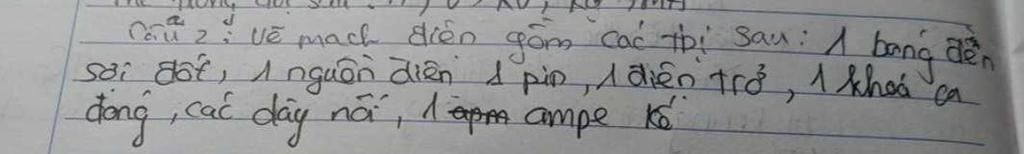 Câu 2: Vẽ mạch điện gồm các tbị sau: 1 bóng đèn
sợi đốt, 1 nguồn điện 1 pin, 1 điện trở, 1 khoá ca
đóng, các dây nối, 1 ampe kế